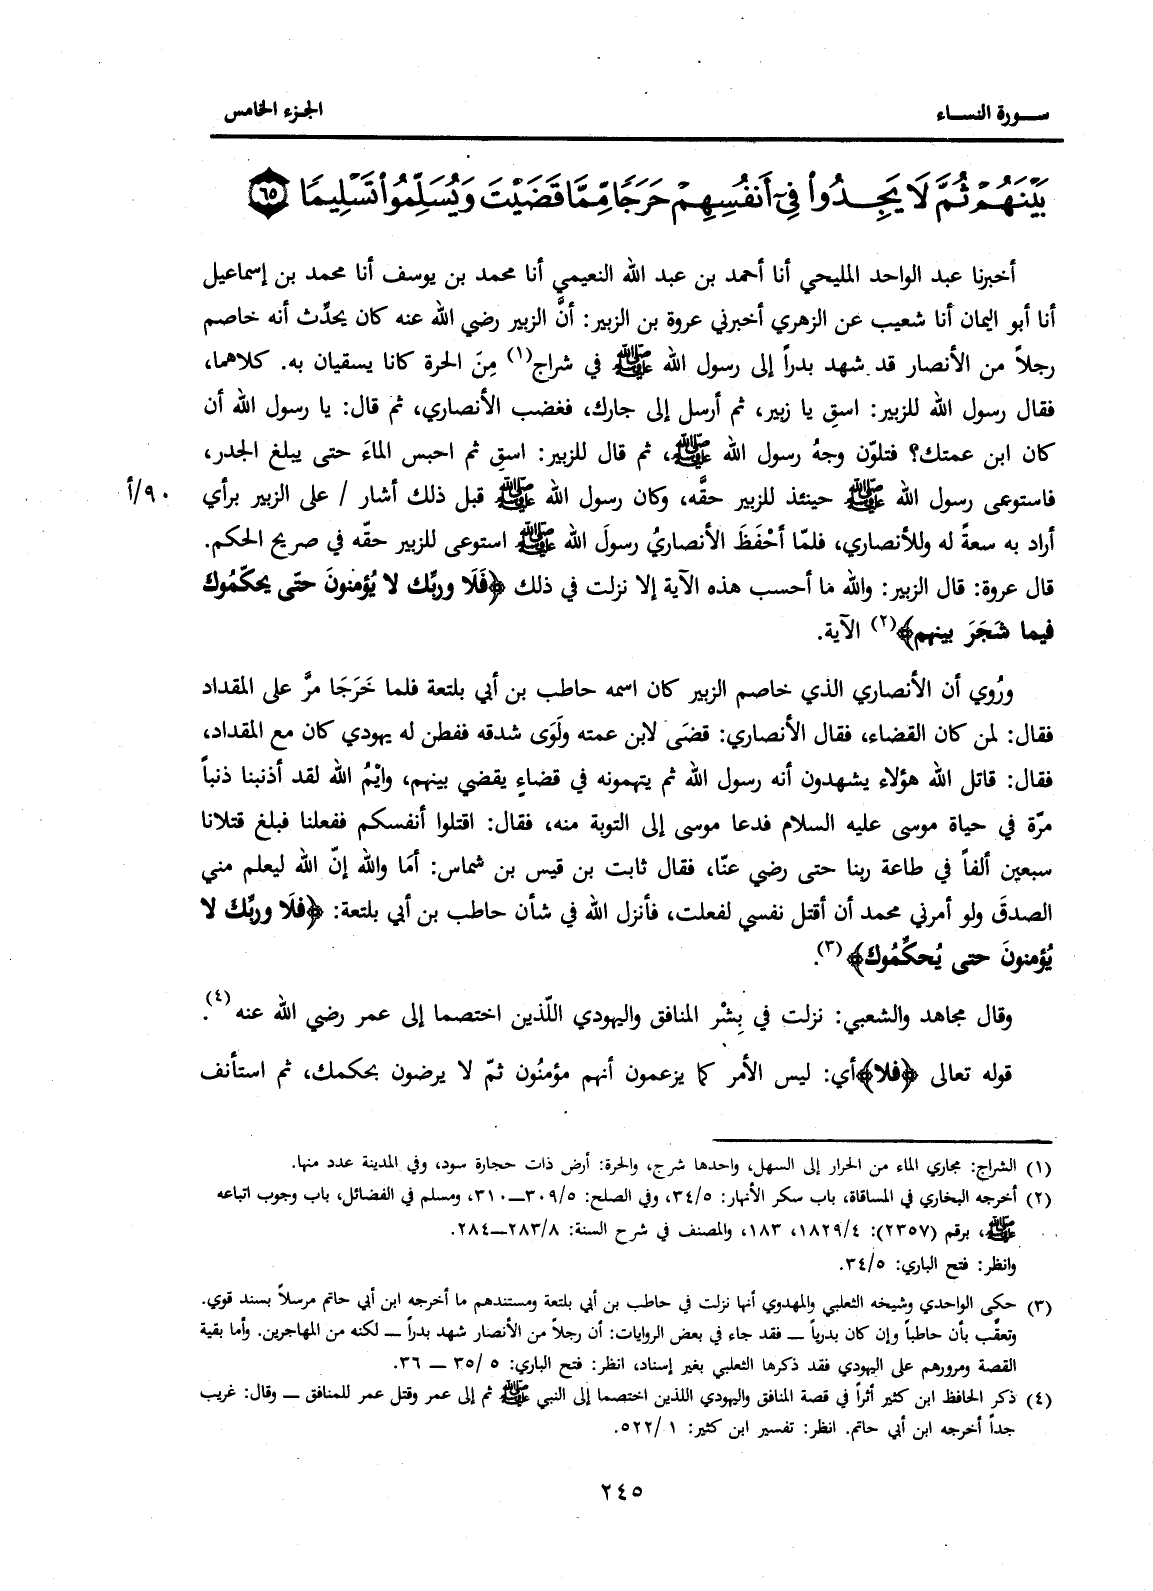 سـورة النسـاء
الجزء الخامس
بَيْنَهُمْ ثُمَّ لَا يَجِدُوا۟ فِىٓ أَنفُسِهِمْ حَرَجًا مِّمَّا قَضَيْتَ وَيُسَلِّمُوا۟ تَسْلِيمًا ٦٥
أخبرنا عبد الواحد المليحي أنا أحمد بن عبد الله النعيمي أنا محمد بن يوسف أنا محمد بن إسماعيل
أنا أبو اليمان أنا شعيب عن الزهري أخبرني عروة بن الزبير: أنَّ الزبير رضي الله عنه كان يحدِّث أنه خاصم
رجلاً من الأنصار قد شهد بدراً إلى رسول الله ﷺ في شراج(١) مِنَ الحرة كانا يسقيان به. كلاهما،
فقال رسول الله للزبير: اسقِ يا زبير، ثم أرسل إلى جارك، فغضب الأنصاري، ثم قال: يا رسول الله أن
كان ابن عمتك؟ فتلوّن وجهُ رسول الله ﷺ، ثم قال للزبير: اسقِ ثم احبس الماءَ حتى يبلغ الجدر،
فاستوعى رسول الله ﷺ حينئذ للزبير حقَّه، وكان رسول الله ﷺ قبل ذلك أشار / على الزبير برأي
٩٠/أ
أراد به سعةً له وللأنصاري، فلمّا أحْفَظَ الأنصاريُ رسولَ الله ﷺ استوعى للزبير حقّه في صريح الحكم.
قال عروة: قال الزبير: والله ما أحسب هذه الآية إلا نزلت في ذلك ﴿فَلَا وربِّك لا يُؤمنونَ حتّى يحكّمُوكَ
فيما شَجَرَ بينهم﴾(٢) الآية.
ورُوي أن الأنصاري الذي خاصم الزبير كان اسمه حاطب بن أبي بلتعة فلما خَرَجَا مرَّ على المقداد
فقال: لمن كان القضاء، فقال الأنصاري: قضَى لابن عمته ولَوَى شدقه ففطن له يهودي كان مع المقداد،
فقال: قاتل الله هؤلاء يشهدون أنه رسول الله ثم يتهمونه في قضاءٍ يقضي بينهم، وايْمُ الله لقد أذنبنا ذنباً
مرّة في حياة موسى عليه السلام فدعا موسى إلى التوبة منه، فقال: اقتلوا أنفسكم ففعلنا فبلغ قتلانا
سبعين ألفاً في طاعة ربنا حتى رضي عنّا، فقال ثابت بن قيس بن شماس: أمَا والله إنّ الله ليعلم مني
الصدقَ ولو أمرني محمد أن أقتل نفسي لفعلت، فأنزل الله في شأن حاطب بن أبي بلتعة: ﴿فلَا وربِّكَ لا
يُؤمنونَ حتى يُحكِّمُوكَ﴾(٣).
وقال مجاهد والشعبي: نزلت في بِشْر المنافق واليهودي اللّذين اختصما إلى عمر رضي الله عنه(٤).
قوله تعالى ﴿فلا﴾ أي: ليس الأمر كما يزعمون أنهم مؤمنُون ثمّ لا يرضون بحكمك، ثم استأنف
(١) الشراج: مجاري الماء من الحرار إلى السهل، واحدها شرج، والحرة: أرض ذات حجارة سود، وفي المدينة عدد منها.
(٢) أخرجه البخاري في المساقاة، باب سكر الأنهار: ٣٤/٥، وفي الصلح: ٣٠٩/٥ــ٣١٠، ومسلم في الفضائل، باب وجوب اتباعه
ﷺ، برقم (٢٣٥٧): ١٨٢٩/٤، ١٨٣، والمصنف في شرح السنة: ٢٨٣/٨ــ٢٨٤.
وانظر: فتح الباري: ٣٤/٥.
(٣) حكى الواحدي وشيخه الثعلبي والمهدوي أنها نزلت في حاطب بن أبي بلتعة ومستندهم ما أخرجه ابن أبي حاتم مرسلاً بسند قوي.
وتعقَّب بأن حاطباً وإن كان بدرياً ــ فقد جاء في بعض الروايات: أن رجلاً من الأنصار شهد بدراً ــ لكنه من المهاجرين. وأما بقية
القصة ومرورهم على اليهودي فقد ذكرها الثعلبي بغير إسناد، انظر: فتح الباري: ٥ /٣٥ ــ ٣٦.
(٤) ذكر الحافظ ابن كثير أثراً في قصة المنافق واليهودي اللذين اختصما إلى النبي ﷺ ثم إلى عمر وقتل عمر للمنافق ــ وقال: غريب
جداً أخرجه ابن أبي حاتم. انظر: تفسير ابن كثير: ١ /٥٢٢.
٢٤٥